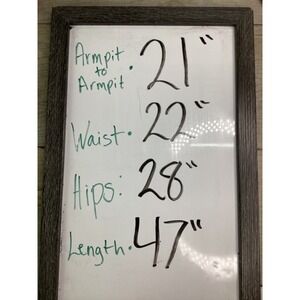 Armpit
to
Armpit • 21"
Waist • 22"
Hips: 28"
Length • 47"